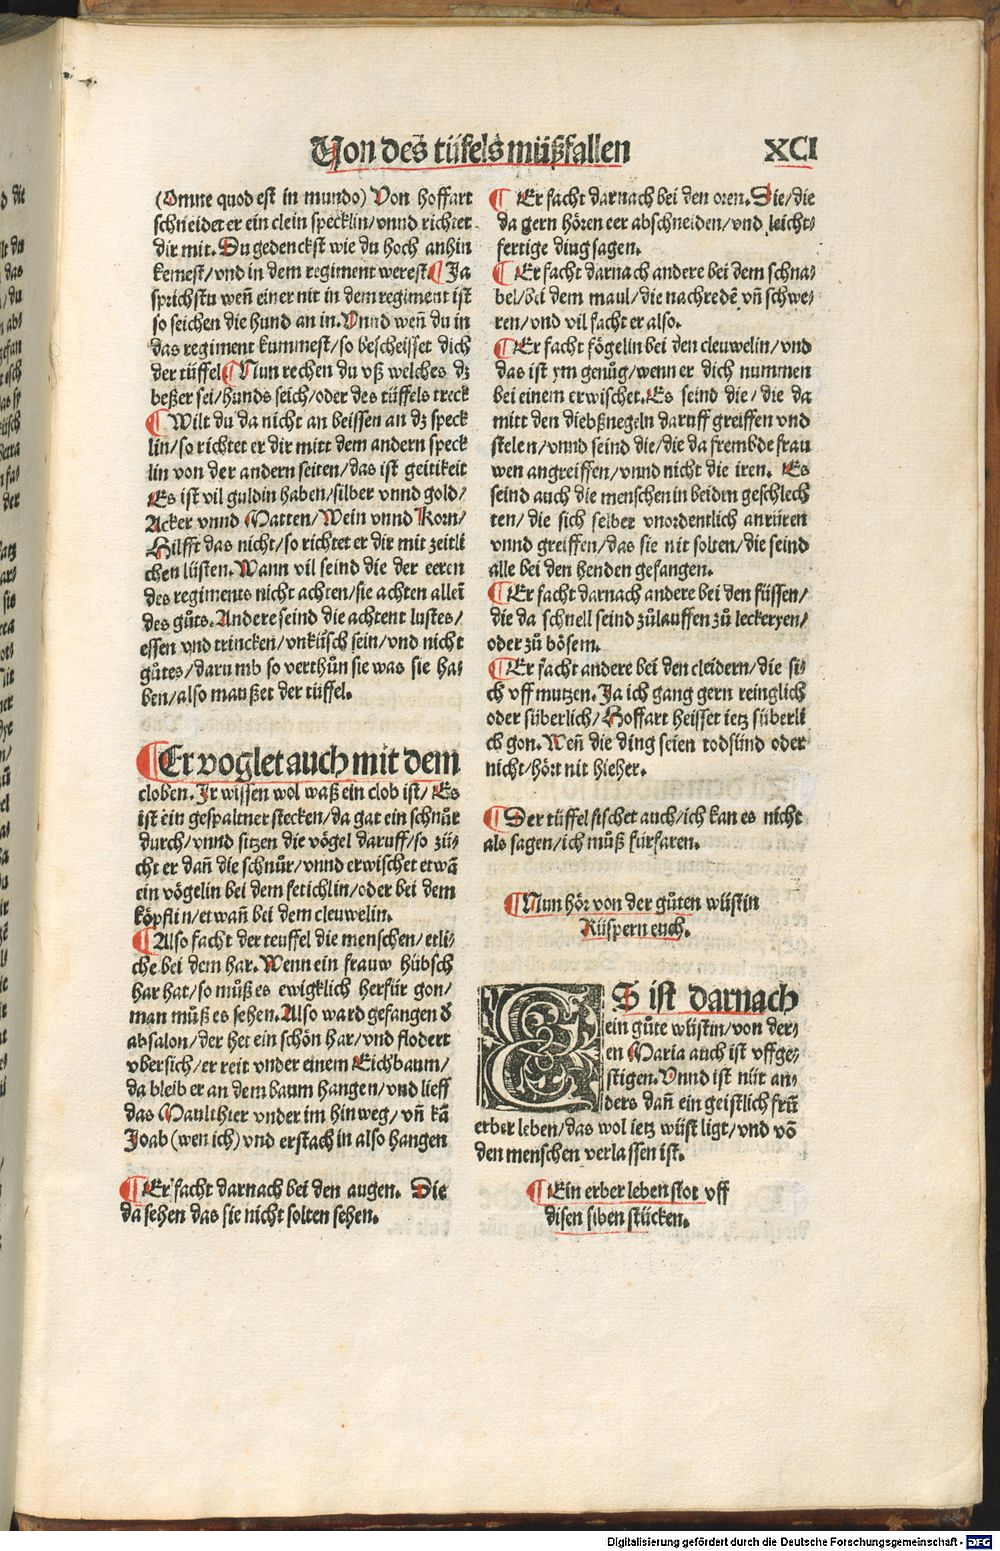 Von des tüfels müßfallen
XCI
(Omne quod est in mundo) Von hoffart
schneidet er ein clein specklin/vnnd richtet
dir mit. Du gedenckst wie du hoch anhin
kemest/vnd in dem regiment werest ¶ Ja
sprichstu weñ einer nit in dem regiment ist
so seichen die hund an in. Vnnd weñ du in
das regiment kummest/so bescheisset dich
der tüffel ¶ Nun rechen du vß welches dz
beßer sei/hunds seich/oder des tüffels treck
¶ Wilt du da nicht an beissen an dz speck
lin/so richtet er dir mitt dem andern speck
lin von der andern seiten/das ist geitikeit
Es ist vil guldin haben/silber vnnd gold/
Acker vnnd Matten/Wein vnnd Korn/
Hilfft das nicht/so richtet er dir mit zeitli
chen lüsten. Wann vil seind die der eeren
des regiments nicht achten/sie achten alleĩ
des gůts. Andere seind die achtent lustes/
essen vnd trincken/vnküsch sein/vnd nicht
gůtes/darumb so verthůn sie was sie ha-
ben/also maußet der tüffel.
¶ Er voglet auch mit dem
cloben. Ir wissen wol waß ein clob ist/Es
ist ein gespaltner stecken/da gat ein schnůr
durch/vnnd sitzen die vögel daruff/so zü-
cht er dañ die schnůr/vnnd erwischet etwã
ein vögelin bei dem fetichlin/oder bei dem
köpflin/etwañ bei dem cleuwelin.
¶ Also facht der teuffel die menschen/etli-
che bei dem har. Wenn ein frauw hübsch
har hat/so můß es ewigklich herfür gon/
man můß es sehen. Also ward gefangen d̕
absalon/der het ein schön har/vnd flodert
vbersich/er reit vnder einem Eichbaum/
da bleib er an dem baum hangen/vnd lieff
das Maulthier vnder im hinweg/vñ kã
Joab (wen ich) vnd erstach in also hangen
¶ Er facht darnach bei den augen. Die
da sehen das sie nicht solten sehen.
¶ Er facht darnach bei den oren. Die/die
da gern hören eer abschneiden/vnd leicht-
fertige ding sagen.
¶ Er facht darnach andere bei dem schna-
bel/bei dem maul/die nachredẽ vñ schwe-
ren/vnd vil facht er also.
¶ Er facht fögelin bei den cleuwelin/vnd
das ist ym genůg/wenn er dich nummen
bei einem erwischet. Es seind die/die da
mitt den diebßnegeln daruff greiffen vnd
stelen/vnnd seind die/die da frembde frau
wen angreiffen/vnnd nicht die iren. Es
seind auch die menschen in beiden geschlech
ten/die sich selber vnordentlich anrüren
vnnd greiffen/das sie nit solten/die seind
alle bei den henden gefangen.
¶ Er facht darnach andere bei den füssen/
die da schnell seind zůlauffen zů leckeryen/
oder zů bösem.
¶ Er facht andere bei den cleidern/die si-
ch vff mutzen. Ja ich gang gern reinglich
oder süberlich/Hoffart heisset ietz süberli
ch gon. Weñ die ding seien todsünd oder
nicht/hört nit hieher.
¶ Der tüffel fischet auch/ich kan es nicht
als sagen/ich můß fürfaren.
¶ Nun hör von der gůten wüstin
Rüspern euch.
ES ist darnach
ein gůte wüstin/von der-
en Maria auch ist vffge-
stigen. Vnnd ist nüt an-
ders dañ ein geistlich frũ
erber leben/das wol ietz wüst ligt/vnd võ
den menschen verlassen ist.
¶ Ein erber leben stot vff
disen siben stücken.
Digitalisierung gefördert durch die Deutsche Forschungsgemeinschaft - DFG